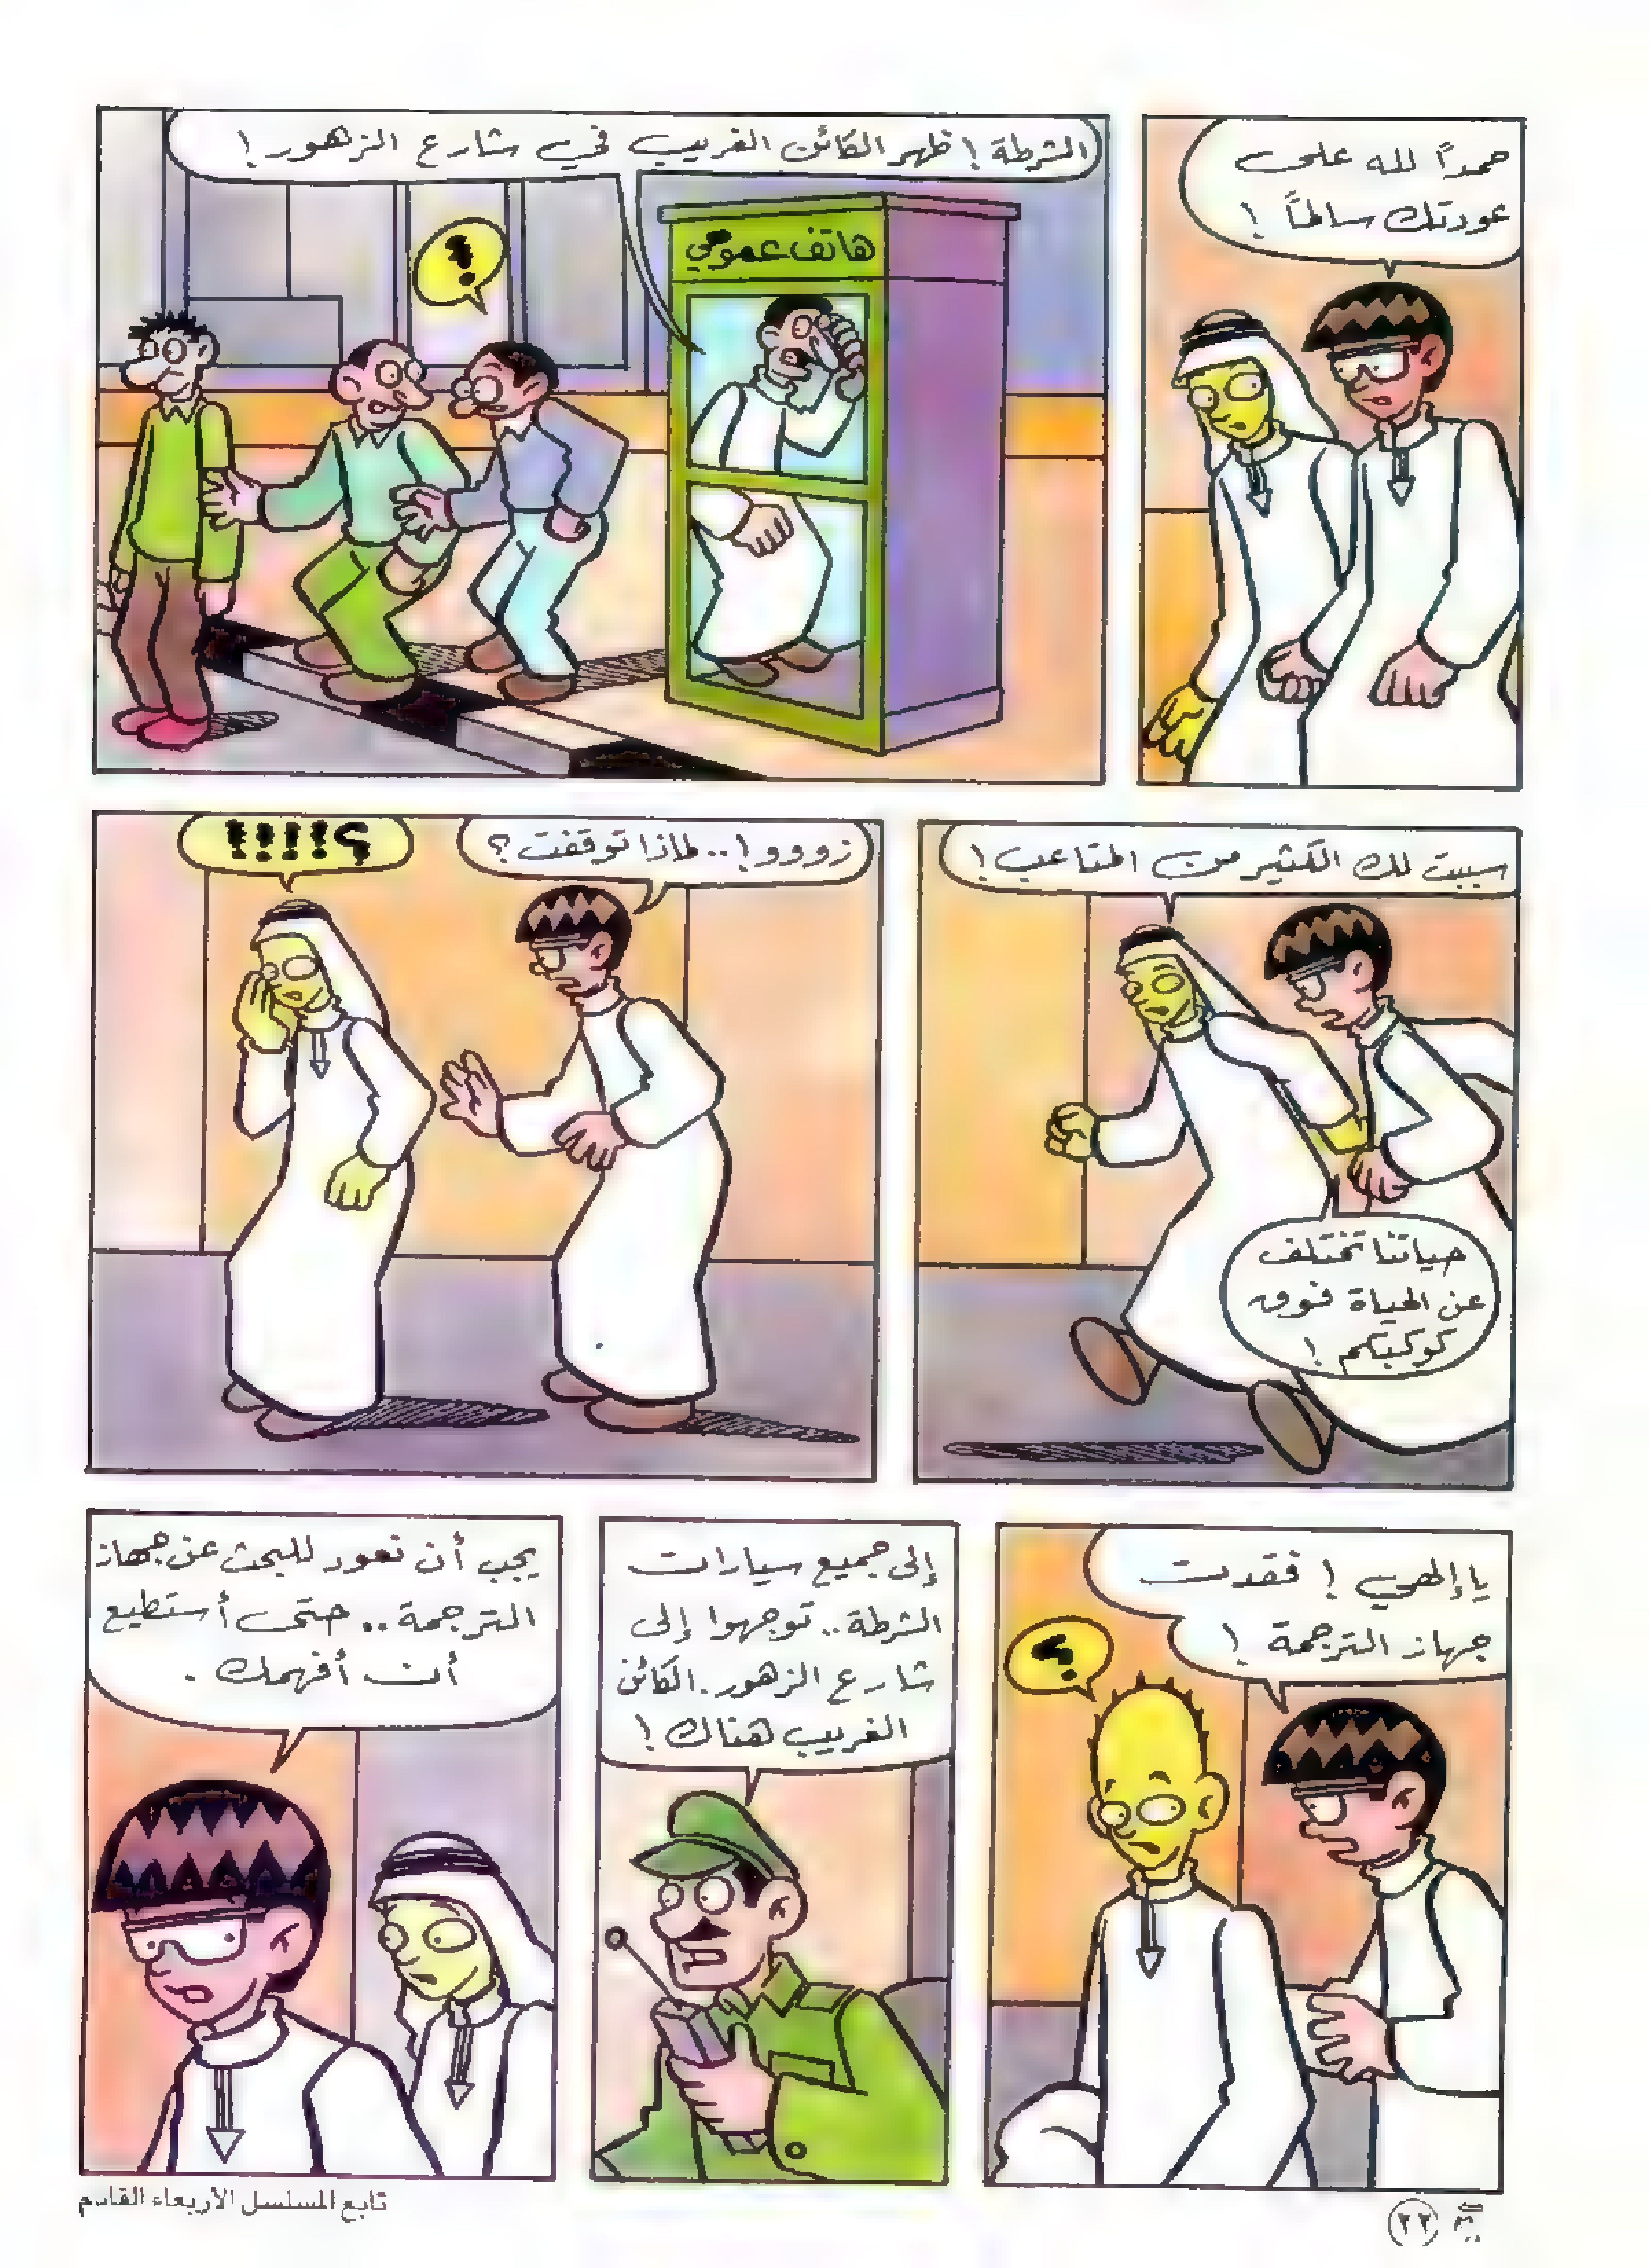 حمداً لله على
عودتك سالماً !
الشرطة ! ظهر الكائن الغريب في شارع الزهور !
!
هاتف عمومي
سببت لك الكثير من المتاعب !
حياتنا تختلف
عن الحياة فوق
كوكبكم !
زووو ! .. لماذا توقفت ؟
؟!!!!
يا إلهي ! فقدت
جهاز الترجمة !
؟
إلى جميع سيارات
الشرطة .. توجهوا إلى
شارع الزهور . الكائن
الغريب هناك !
يجب أن نعود للبحث عن جهاز
الترجمة .. حتى أستطيع
أن أفهمك .
٢٢
تابع المسلسل الأربعاء القادم